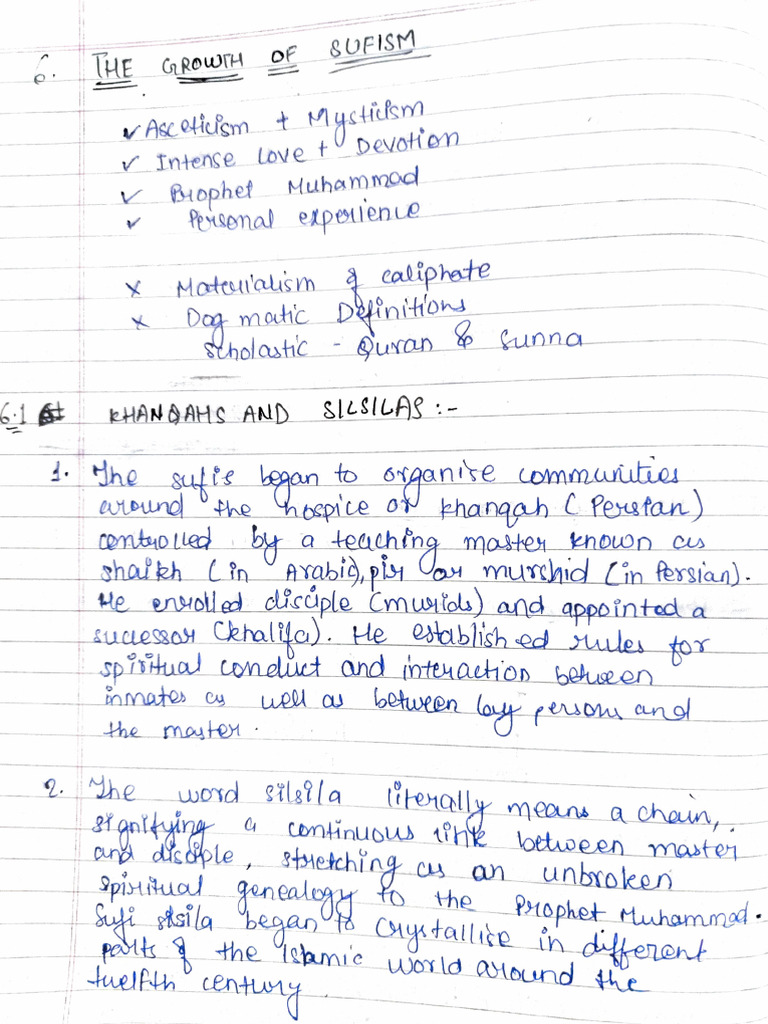 6. THE GROWTH OF SUFISM
✓ Asceticism + Mysticism
✓ Intense love + Devotion
✓ Prophet Muhammad
✓ Personal experience
x Materialism of caliphate
x Dogmatic Definitions
scholastic - Quran & Sunna
6.1 KHANQAHS AND SILSILAS :-
1. The sufis began to organise communities
around the hospice or khanqah (Persian)
controlled by a teaching master known as
shaikh (in Arabic), pir or murshid (in Persian).
He enrolled disciple (murids) and appointed a
successor (khalifa). He established rules for
spiritual conduct and interaction between
inmates as well as between lay persons and
the master.
2. The word silsila literally means a chain,
signifying a continuous link between master
and disciple, stretching as an unbroken
spiritual genealogy to the Prophet Muhammad.
Sufi silsila began to crystallise in different
parts of the Islamic world around the
twelfth century